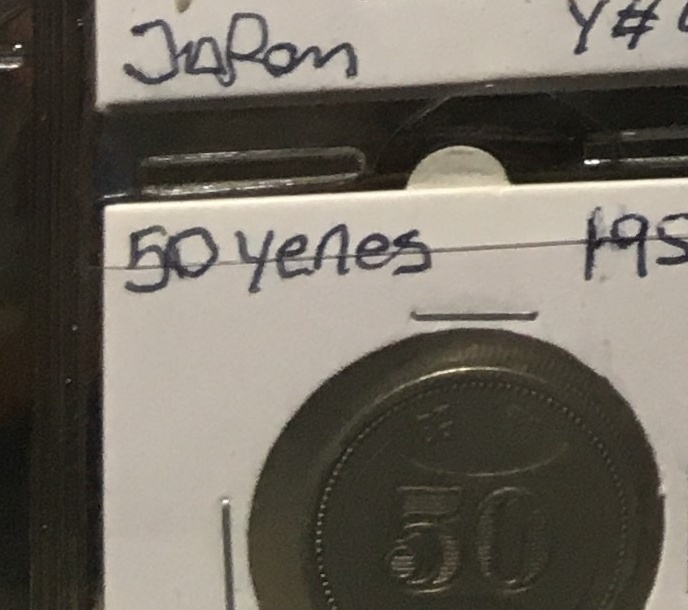 Japon Y#
50 yenes 195
50